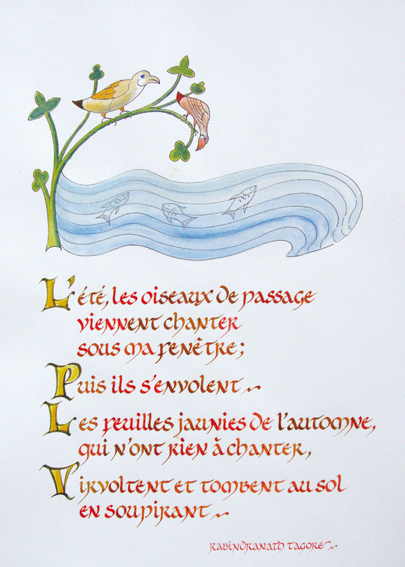 L'été, les oiseaux de passage
viennent chanter
sous ma fenêtre;
Puis ils s'envolent
Les feuilles jaunies de l'automne,
qui n'ont rien à chanter,
Virvoltent et tombent au sol
en soupirant
Rabindranath Tagore